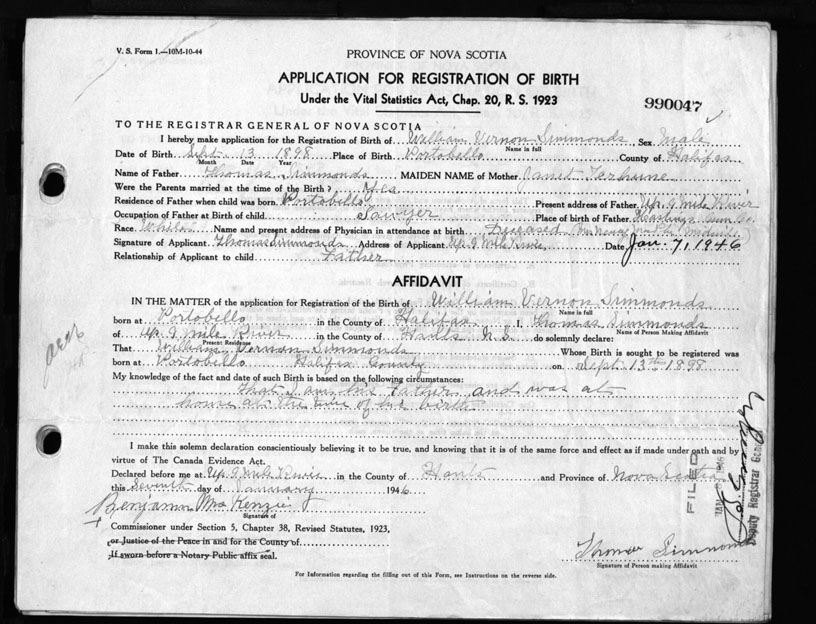 V. S. Form 1.—10M-10-44
PROVINCE OF NOVA SCOTIA
APPLICATION FOR REGISTRATION OF BIRTH
Under the Vital Statistics Act, Chap. 20, R. S. 1923
990047
TO THE REGISTRAR GENERAL OF NOVA SCOTIA
I hereby make application for the Registration of Birth of William Vernon Simmonds, Sex Male
Name in full
Date of Birth Sept. 13 1898 Place of Birth Portobello County of Halifax
Month Date Year
Name of Father Thomas Simmonds MAIDEN NAME of Mother Janet
Were the Parents married at the time of the Birth? Yes
Residence of Father when child was born. Portobello Present address of Father Up. 9 Mile River
Occupation of Father at Birth of child Sawyer Place of birth of Father Hastings
Race White Name and present address of Physician in attendance at birth Deceased
Signature of Applicant Thomas Simmonds Address of Applicant Up. 9 Mile River Date Jan. 7, 1946
Relationship of Applicant to child Father
AFFIDAVIT
IN THE MATTER of the application for Registration of the Birth of William Vernon Simmonds
Name in full
born at Portobello in the County of Halifax I, Thomas Simmonds
Name of Person Making Affidavit
of Up. 9 Mile River in the County of Hants N.S. do solemnly declare:
Present Residence
That William Vernon Simmonds Whose Birth is sought to be registered was
born at Portobello Halifax County on Sept. 13th 1898
My knowledge of the fact and date of such Birth is based on the following circumstances:
That I am his father and was at
home at the time of his birth
I make this solemn declaration conscientiously believing it to be true, and knowing that it is of the same force and effect as if made under oath and by
virtue of The Canada Evidence Act.
Declared before me at Up. 9 Mile River in the County of Hants and Province of Nova Scotia
this Seventh day of January 1946
Benjamin MacKenzie
Signature of
Commissioner under Section 5, Chapter 38, Revised Statutes, 1923,
or Justice of the Peace in and for the County of
If sworn before a Notary Public affix seal.
Thomas Simmonds
Signature of Person making Affidavit
For Information regarding the filling out of this Form, see Instructions on the reverse side.
FILED
Deputy Registrar General